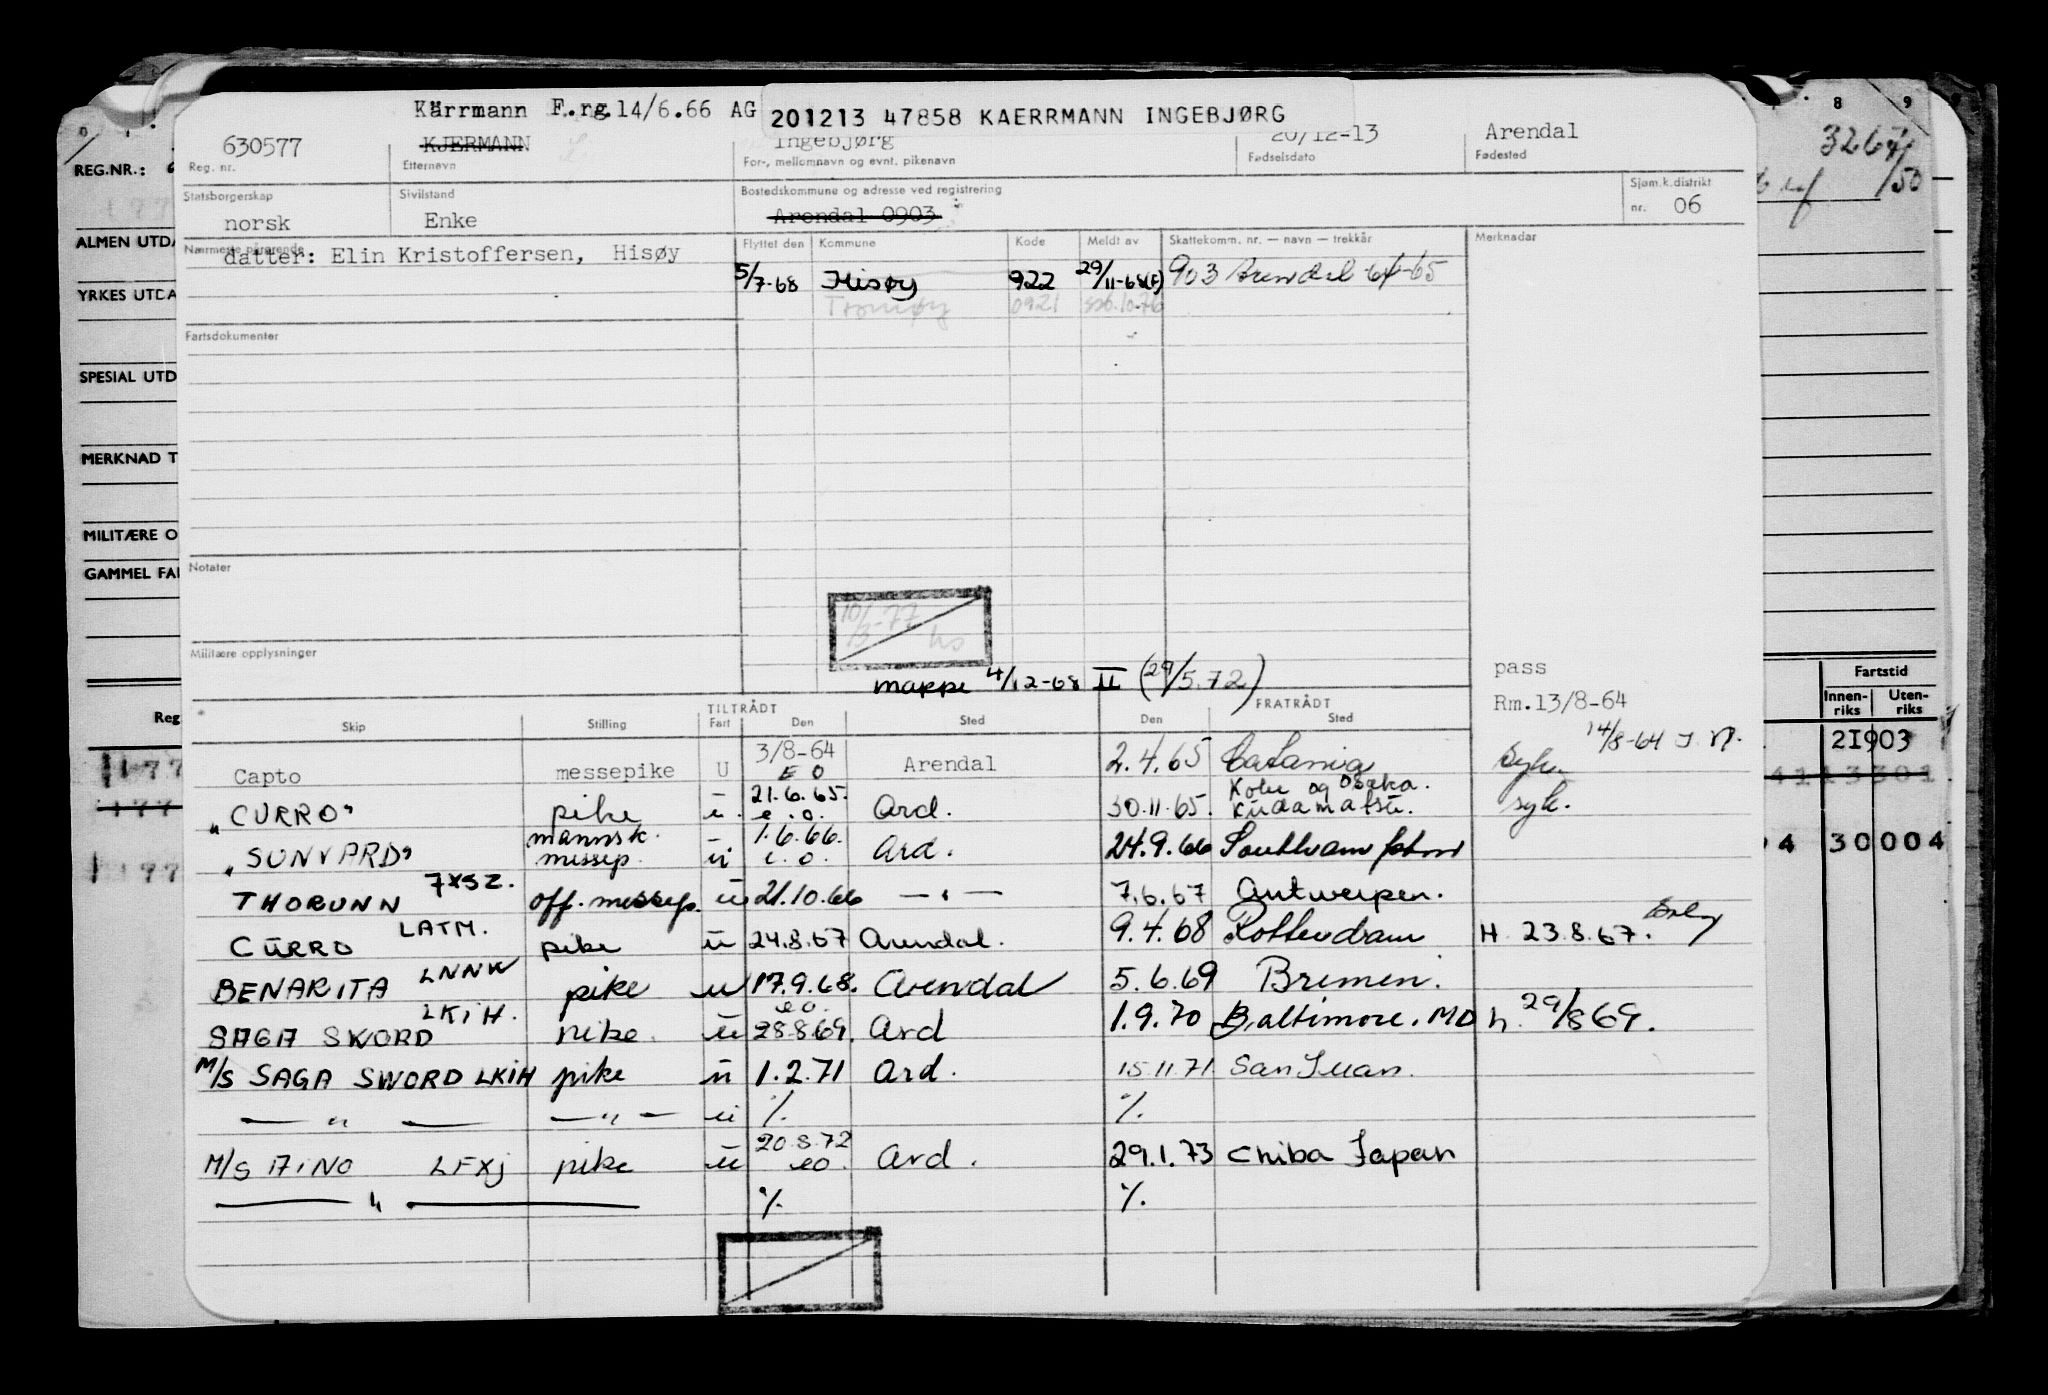 Kärrmann F.rg.14/6.66 AG
201213 47858 KAERRMANN INGEBJØRG
630577 KJERMANN Ingebjørg 20/12-13 Arendal
Reg. nr. Etternavn For-, mellomnavn og evnt. pikenavn Fødselsdato Fødested
Statsborgerskap Sivilstand Bostedskommune og adresse ved registrering Sjøm.k.distrikt
norsk Enke Arendal 0903 nr. 06
Nærmeste pårørende Flyttet den Kommune Kode Meldt av Skattekomm. nr. — navn — trekkår Merknader
datter: Elin Kristoffersen, Hisøy
5/7-68 Hisøy 922 29/11-68(F) 903 Arendal 64-65
Tromøy 0921 10.76
Fartsdokumenter
Notater
10/3-77 hs
Militære opplysninger
mappe 4/12-68 II (29/5.72)
pass
Rm.13/8-64
14/8-64
TILTRÅDT FRATRÅDT
Skip Stilling Fart Den Sted Den Sted
Capto messepike U 3/8-64 E O Arendal 2.4.65 Catania syk.
"CURRO" pike u. 21.6.65. e.o. Ard. 30.11.65. Kobe og Osaka. Kudamatsu. syk.
"SUNVARD" mannsk. messep. ü 1.6.66. e.o. Ard. 24.9.66 Southampton
THORUNN 7XSZ. off. messep. ü 21.10.66 — " — 7.6.67 Antwerpen.
CURRO LATM. pike ü 24.8.67 Arendal. 9.4.68 Rotterdam H 23.8.67.
BENARITA LNNW pike u 17.9.68. eo. Arendal 5.6.69 Bremen.
SAGA SWORD LKIH. pike. ü 28.8.69. Ard 1.9.70 Baltimore. MD h. 29/8 69.
M/S SAGA SWORD LKIH pike ü 1.2.71 Ard. 15.11.71 San Juan.
— " — — " — ü %. %.
M/S AINO LFXJ pike ü 20.8.72 eo. Ard. 29.1.73 Chiba Japan
— " — %. %.
REG.NR.:
ALMEN UTDA
YRKES UTDA
SPESIAL UTD
MERKNAD T
MILITÆRE O
GAMMEL FAR
Reg
177
177
177
8 9
3267/50
Fartstid
Innen-riks Uten-riks
21903
4113301
94 30004